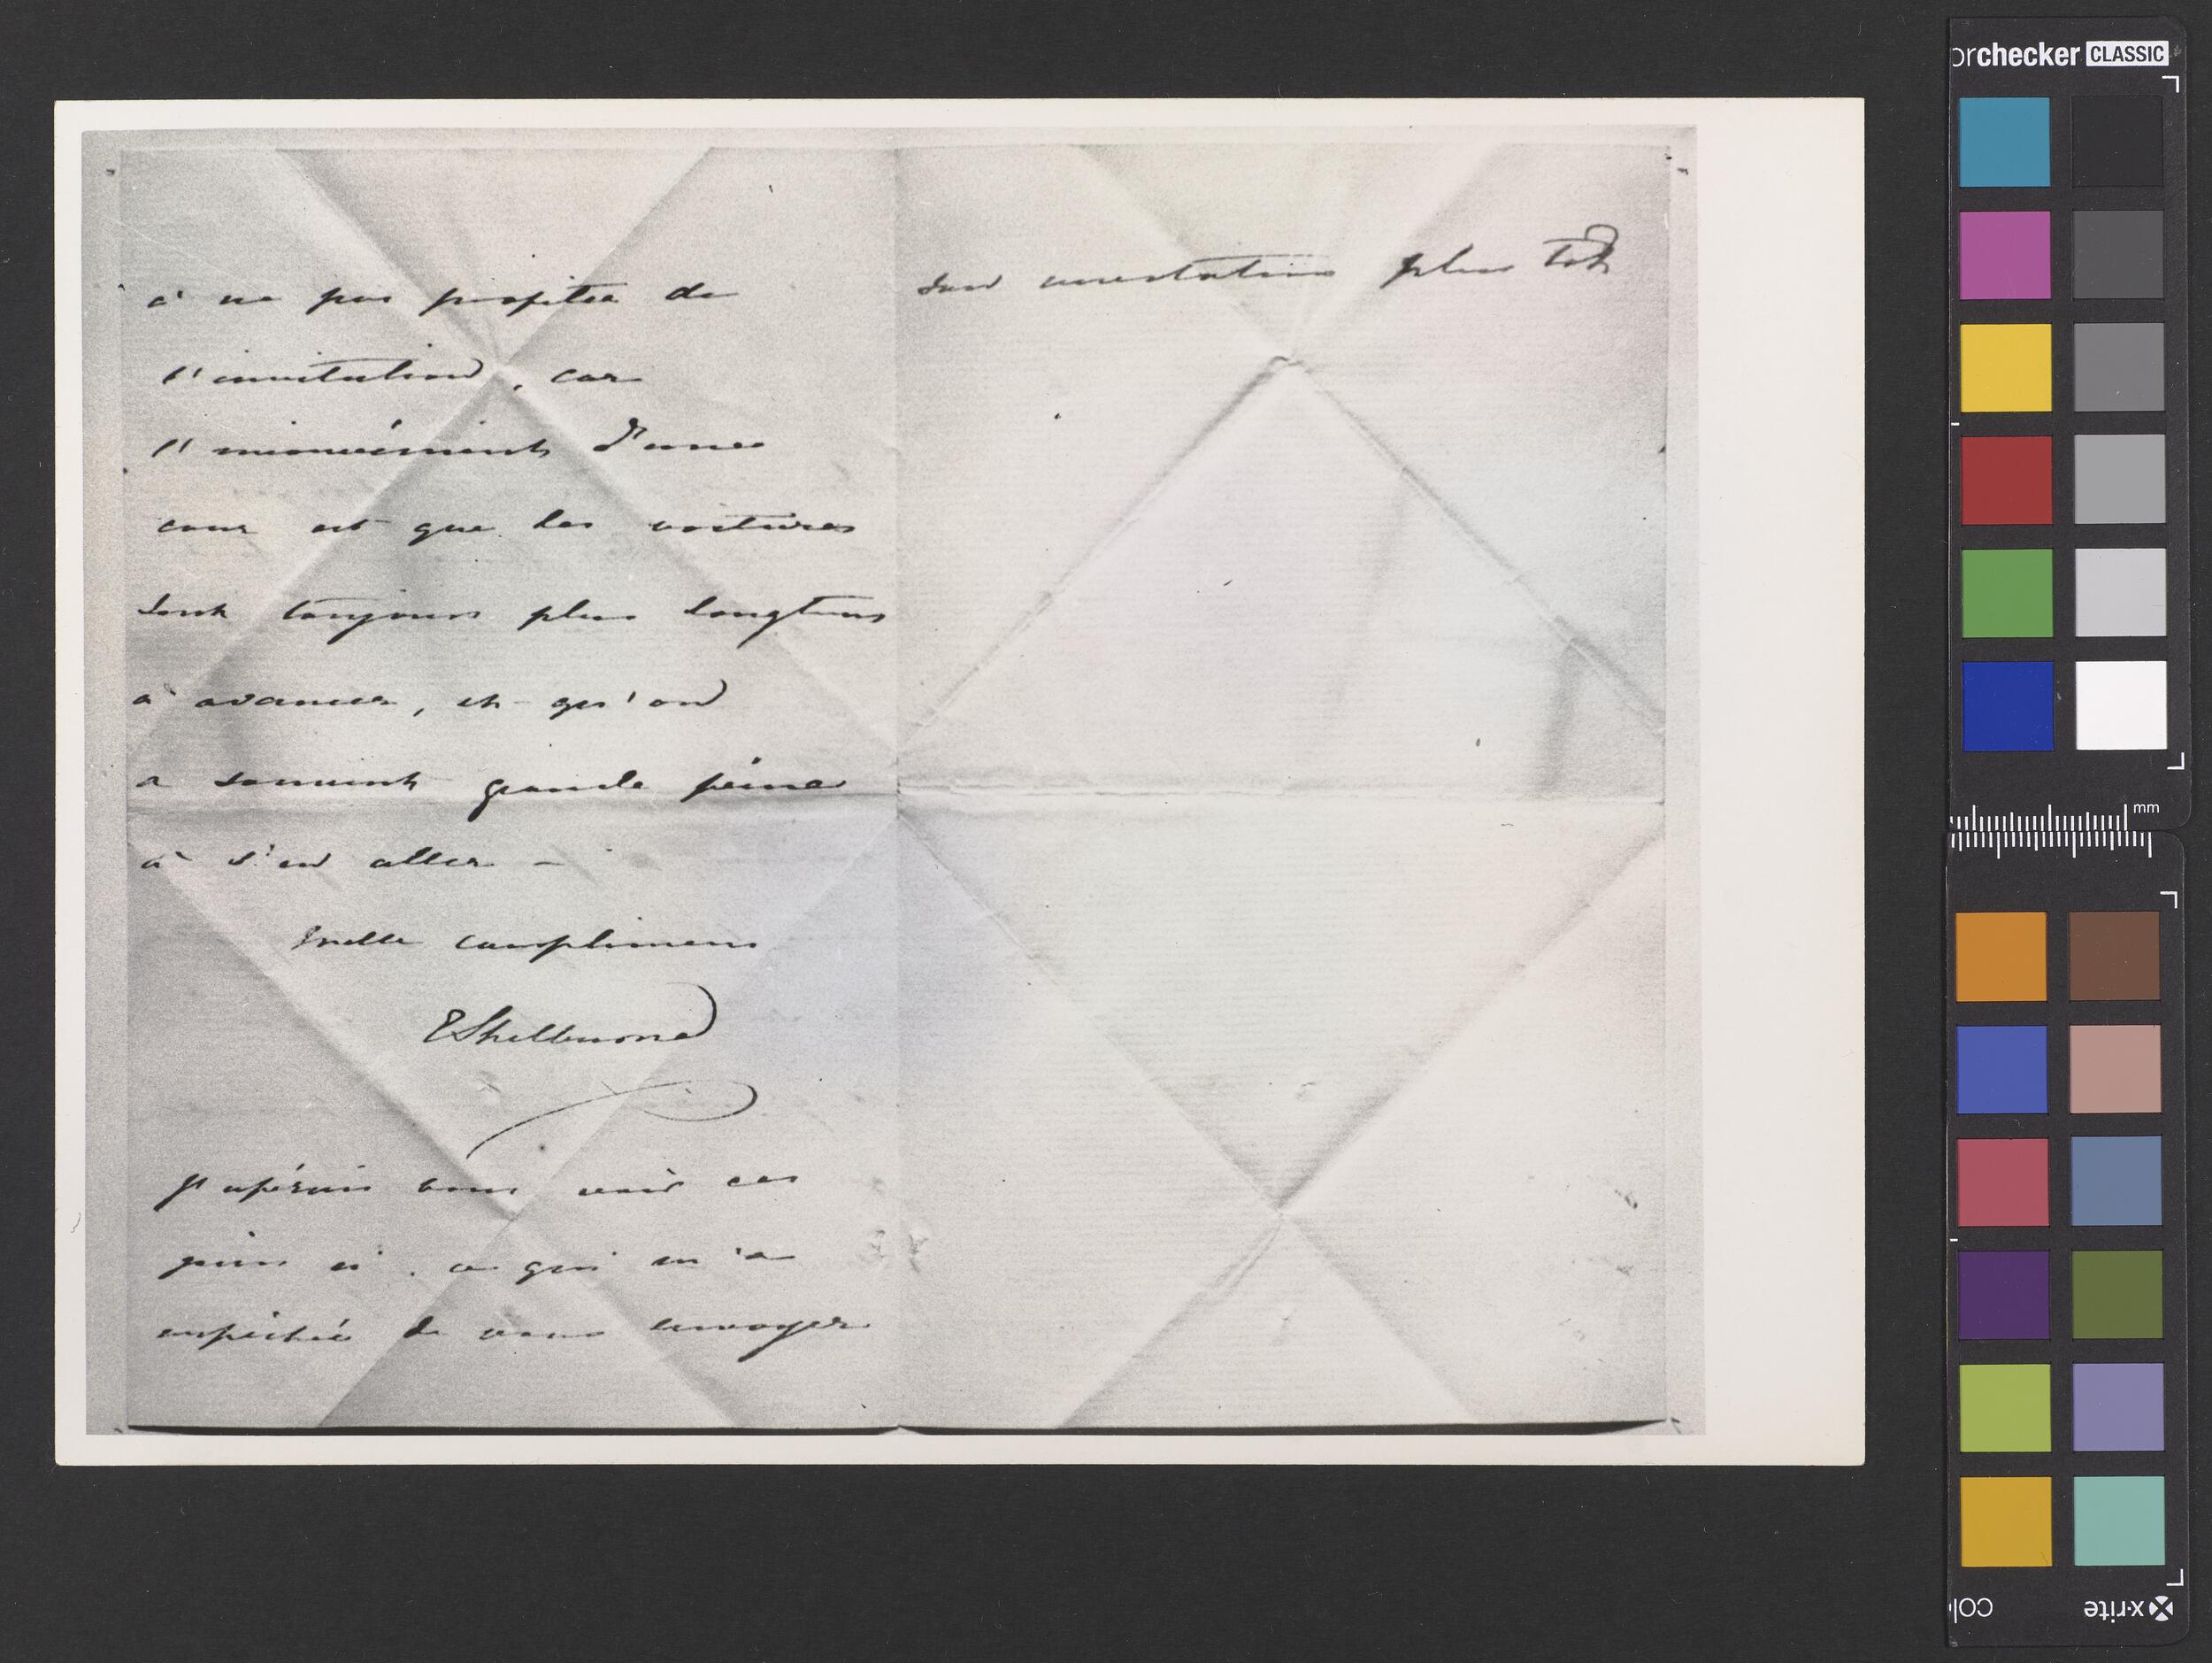 à ne pas profiter de
l'invitation, car
l'inconvénient d'une
cour est que les voitures
sont toujours plus longtems
à avancer, et qu'on
a souvent grande peine
à s'en aller –
Mille complimens
EShelburne
J'espérais vous voir ces
jours ci. ce qui m'a
empêchée de vous envoyer
son invitation plus tôt
orchecker CLASSIC
mm
x-rite
colo